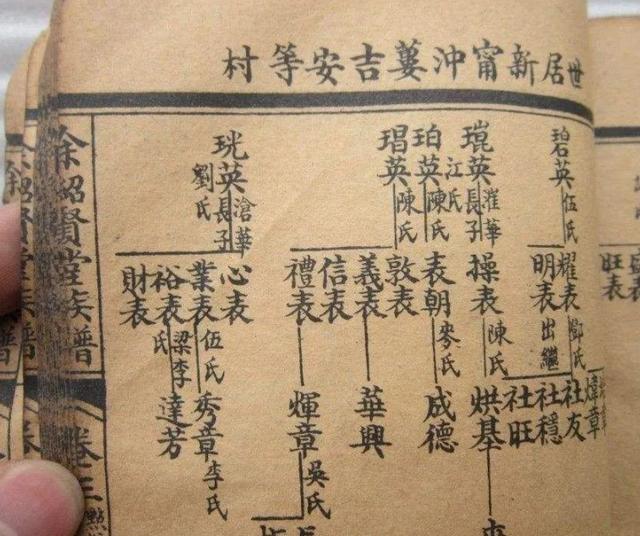 世居新甯沖蔞吉安等村
英伍氏
琨英潅華長子
江氏
珀英陳氏
琩英陳氏
珖英滄華長子
劉氏
旺表
耀表鄧氏
明表出繼
操表陳氏
表朝麥氏
敦表
義表
信表
禮表
心表
業表伍氏
裕表梁李氏
財表
煒章
社友
社穩
社旺
烘基
成德
華興
煇章吳氏
秀章李氏
達芳
余紹賢堂族譜
卷三